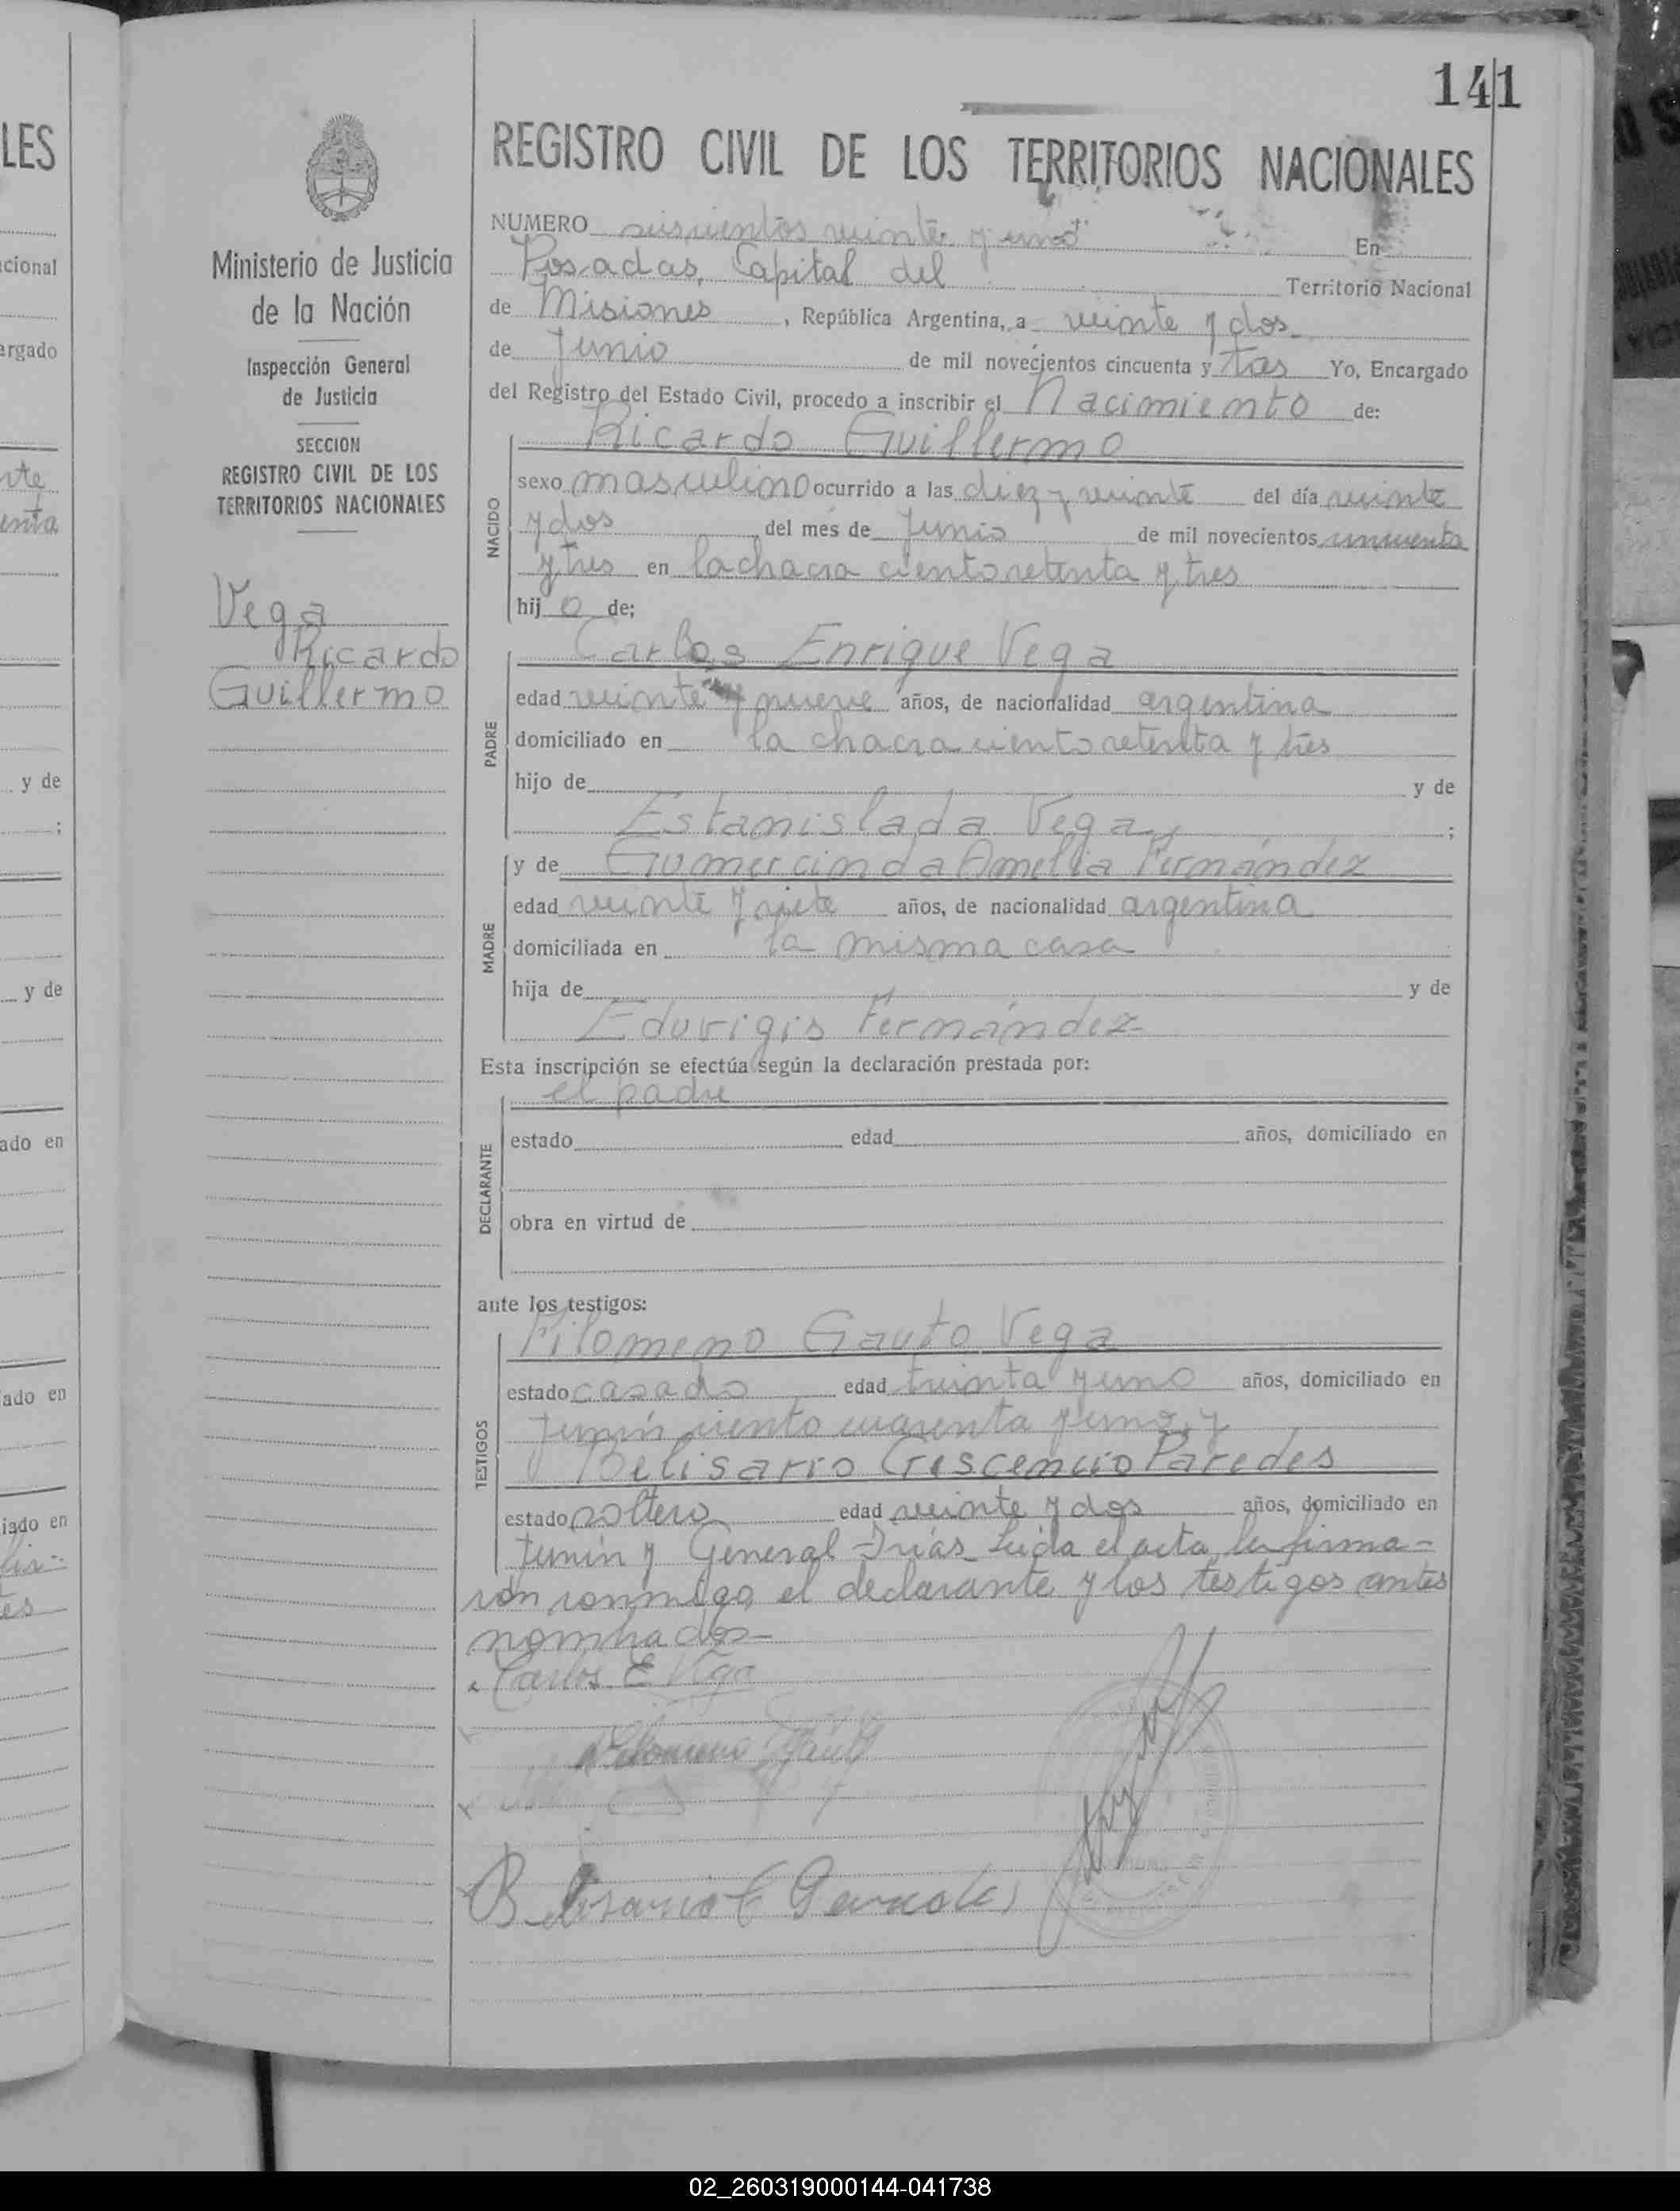 141
LES
REGISTRO CIVIL DE LOS TERRITORIOS NACIONALES
Ministerio de Justicia
de la Nación
Inspección General
de Justicia
SECCION
REGISTRO CIVIL DE LOS
TERRITORIOS NACIONALES
Vega
Ricardo
Guillermo
NUMERO seiscientos veinte y uno En
Posadas, Capital del Territorio Nacional
de Misiones, República Argentina, a veinte y dos
de Junio de mil novecientos cincuenta y tres Yo, Encargado
del Registro del Estado Civil, procedo a inscribir el Nacimiento de:
NACIDO
Ricardo Guillermo
sexo masculino ocurrido a las diez y veinte del día veinte
y dos del mes de Junio de mil novecientos cincuenta
y tres en la chacra ciento setenta y tres
hijo de;
PADRE
Carlos Enrique Vega
edad veinte y nueve años, de nacionalidad argentina
domiciliado en la chacra ciento setenta y tres
hijo de y de
Estanislada Vega ;
MADRE
y de Gumercinda Amelia Fernández
edad veinte y siete años, de nacionalidad argentina
domiciliada en la misma casa
hija de y de
Eduvigis Fernández
Esta inscripción se efectúa según la declaración prestada por:
DECLARANTE
el padre
estado edad años, domiciliado en
obra en virtud de
ante los testigos:
TESTIGOS
Filomeno Gauto Vega
estado casado edad treinta y uno años, domiciliado en
Junín ciento cuarenta y uno, y
Belisario Crescencio Paredes
estado soltero edad veinte y dos años, domiciliado en
Junín y General Frías Leída el acta, la firma-
ron conmigo, el declarante y los testigos antes
nombrados
Carlos E Vega
Filomeno Gauto
Belisario C
cional
argado
y de
y de
ado en
ado en
iado en
02_260319000144-041738